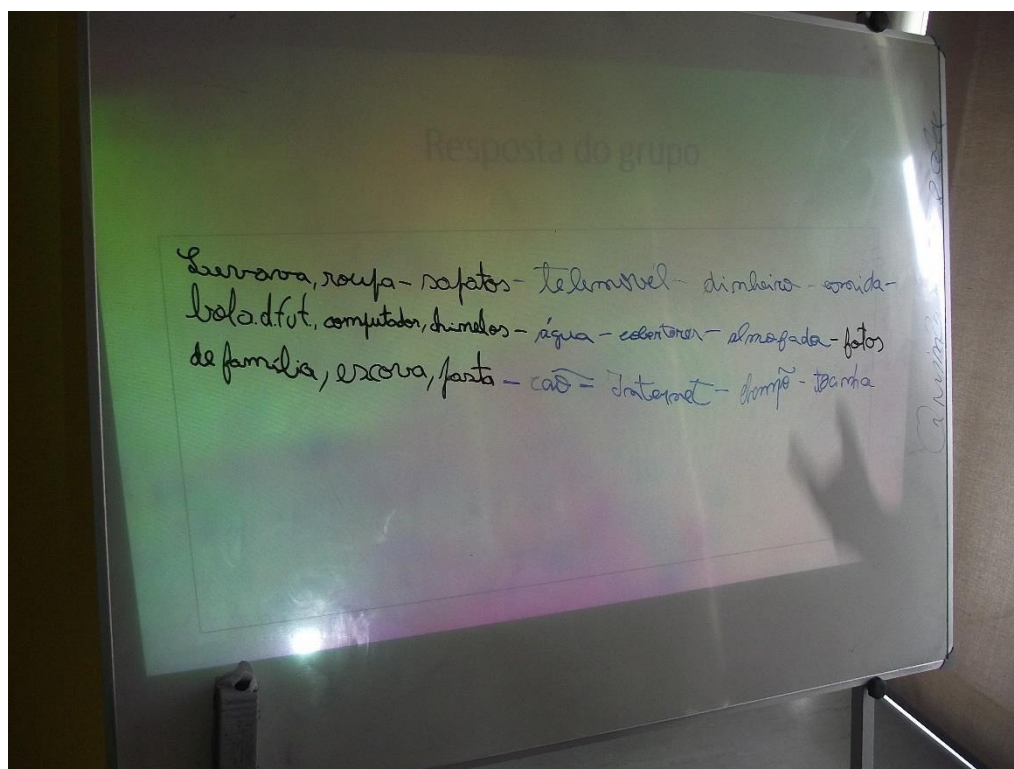 Resposta do grupo
Levava, roupa - sapatos - telemóvel - dinheiro - comida -
bola.d.fut., computador, chinelos - água - cobertores - almofada - fotos
de família, escova, pasta - cão - Internet - champô - toalha